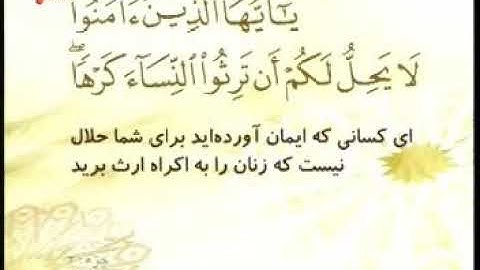 يَٰٓأَيُّهَا ٱلَّذِينَ ءَامَنُوا۟
لَا يَحِلُّ لَكُمْ أَن تَرِثُوا۟ ٱلنِّسَآءَ كَرْهًا ۖ
ای کسانی که ایمان آورده‌اید برای شما حلال
نیست که زنان را به اکراه ارث برید